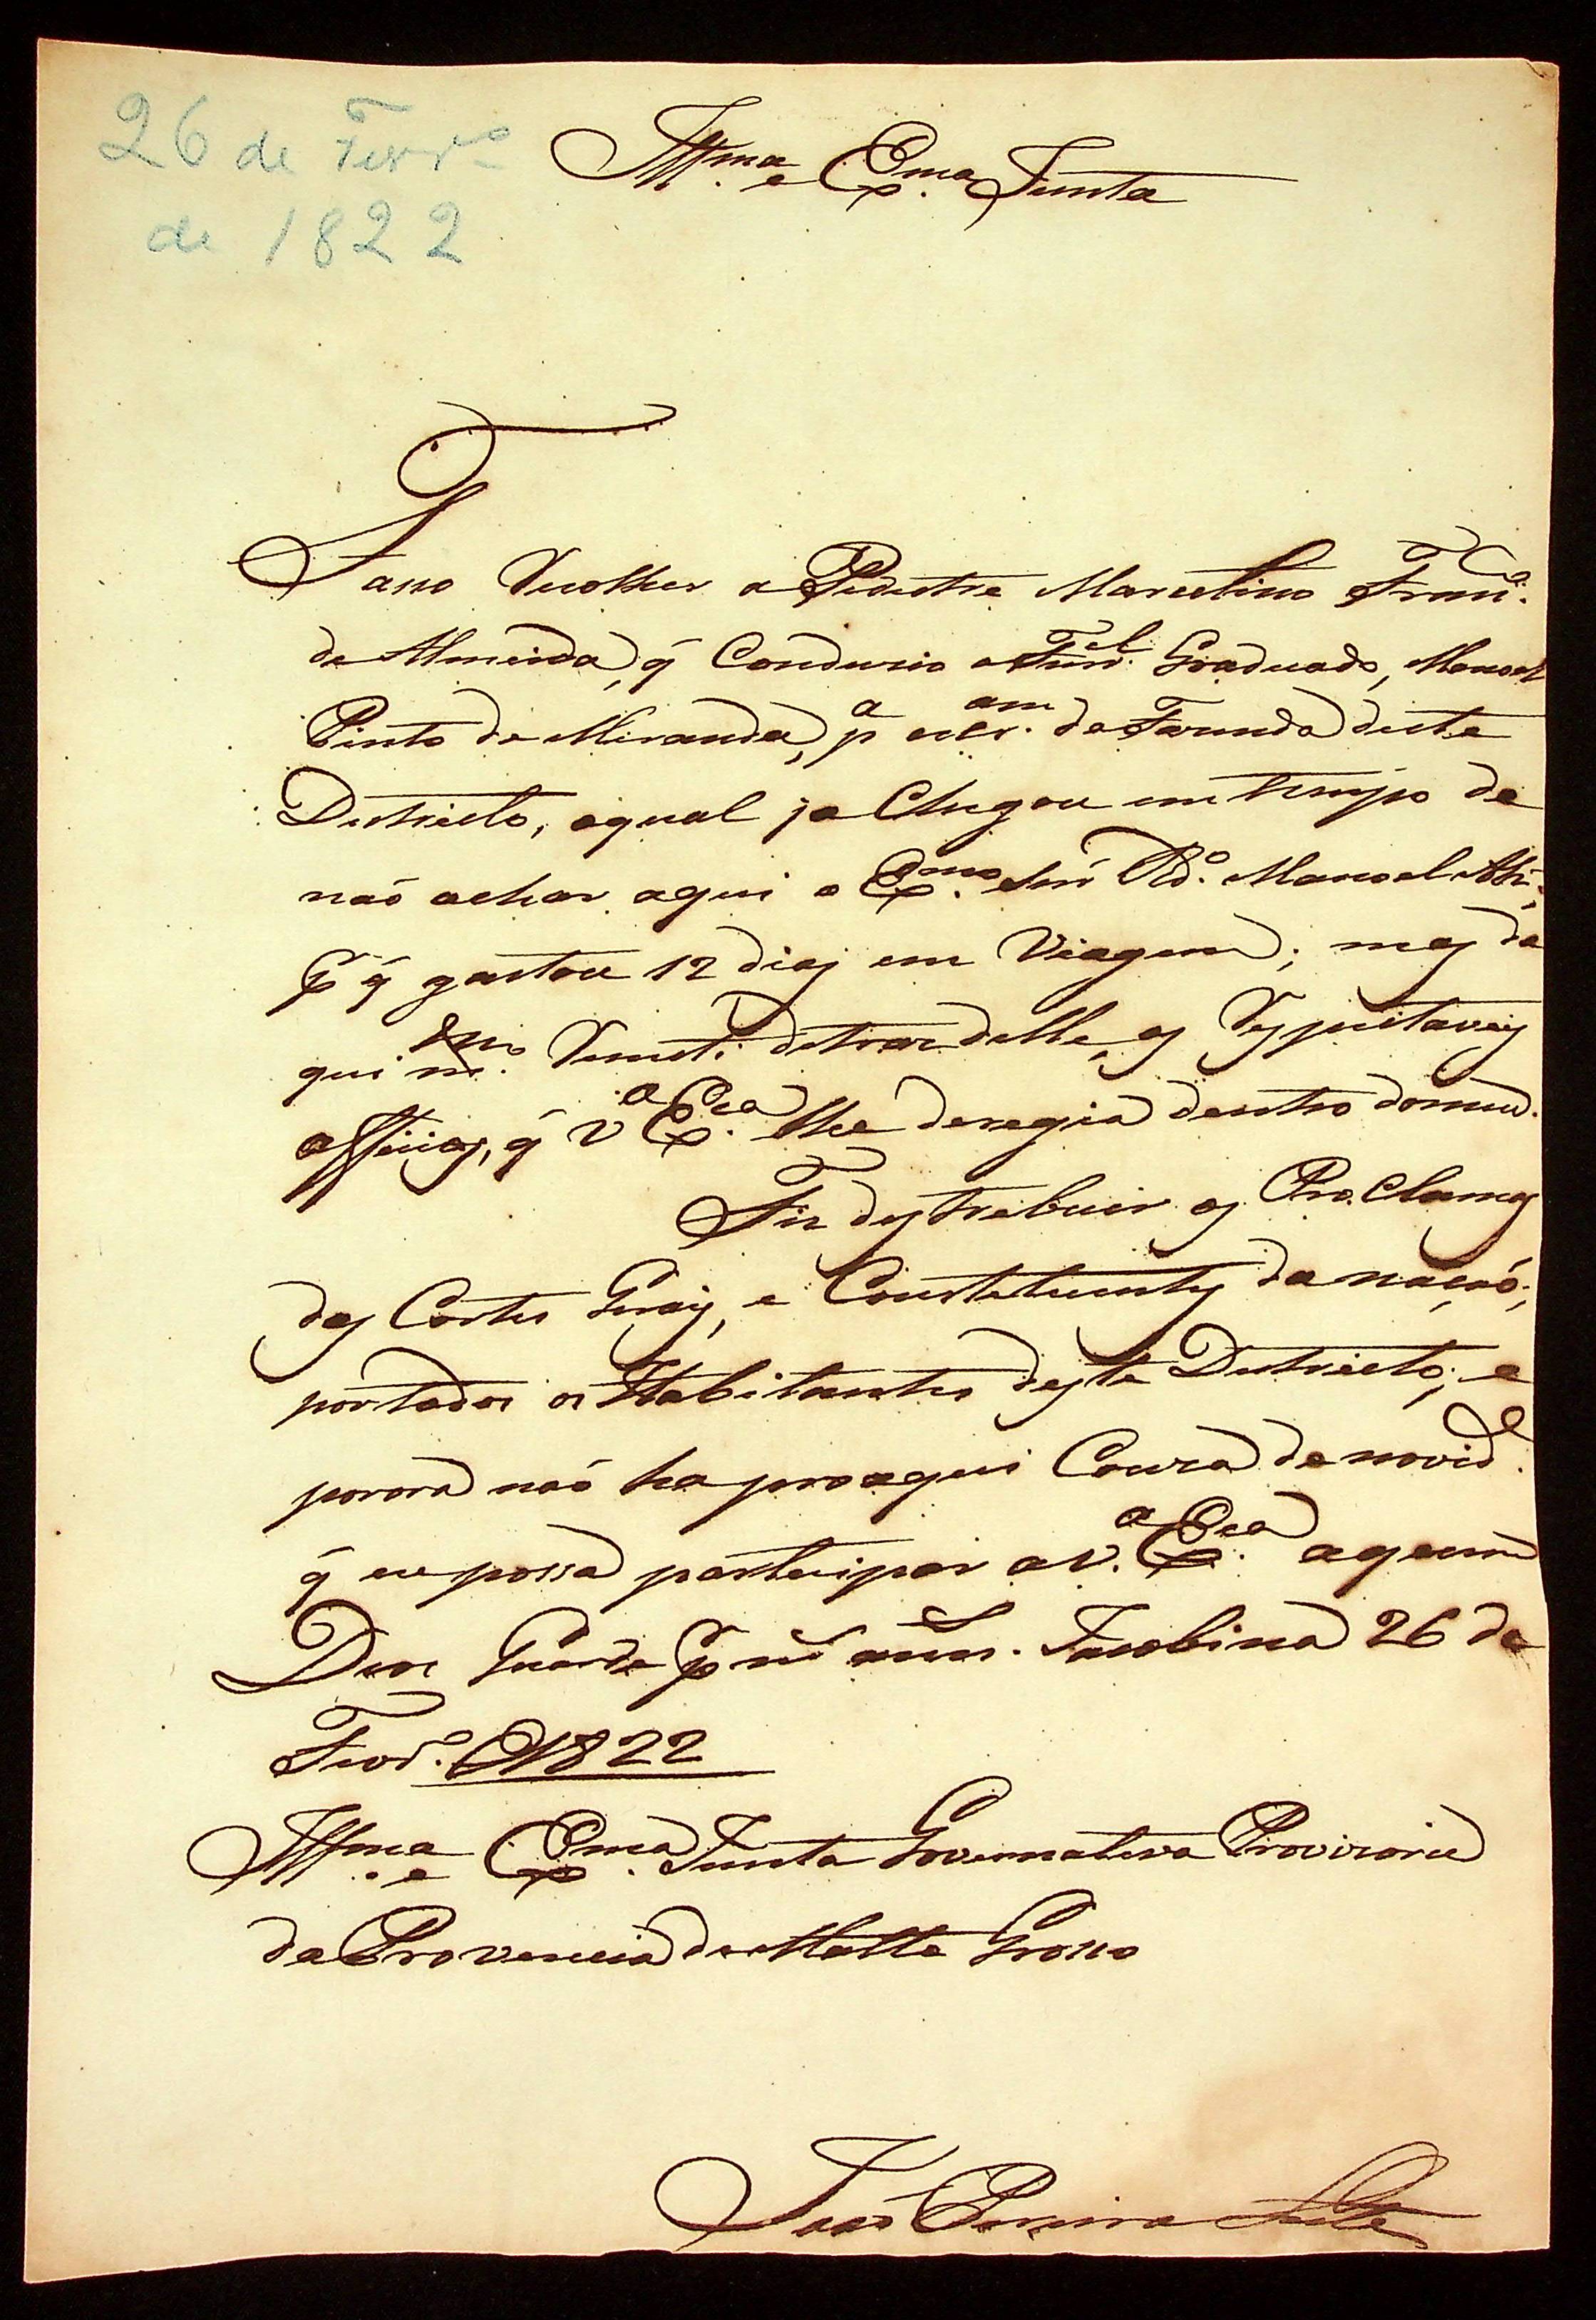 26 de Fevr.o
de 1822
Illma. e Exma. Junta
Faço Recolher o Pedestre Marcelino Franc.o
de Almeida, q̃ Conduzio o Furr.el Graduado, Manoel
Pinto de Miranda, p.a da Fazenda deste
Destricto, oqual ja Chegou em tempo de
naõ achar aqui o Exmo. Snr̃ Rd.o Manoel Alz̃;
q̃ gastou 12 dias em Viagem; mas da
qui m.mo Remeti detraz delle, os Respeitaveis
Officios, q̃ V.a Ex.cia lhe deregia dentro domeu.
Fiz destrebuir os Pro.Clamas
das Cortes Geraes, e Constetuentes da naçaõ;
portodos os Habitantes deste Destricto; e
porora naõ ha proaqui Couza de novid.e
q̃ eu possa partecipar a V.a Ex.cia aquem
Deos Guarde ms̃ anns. Jacobina 26 de
Fevr.o D1822
Illma. e Exma. Junta Governateva Provizoria
da Provencia de Matto Grosso
Joaõ Pereira Leite